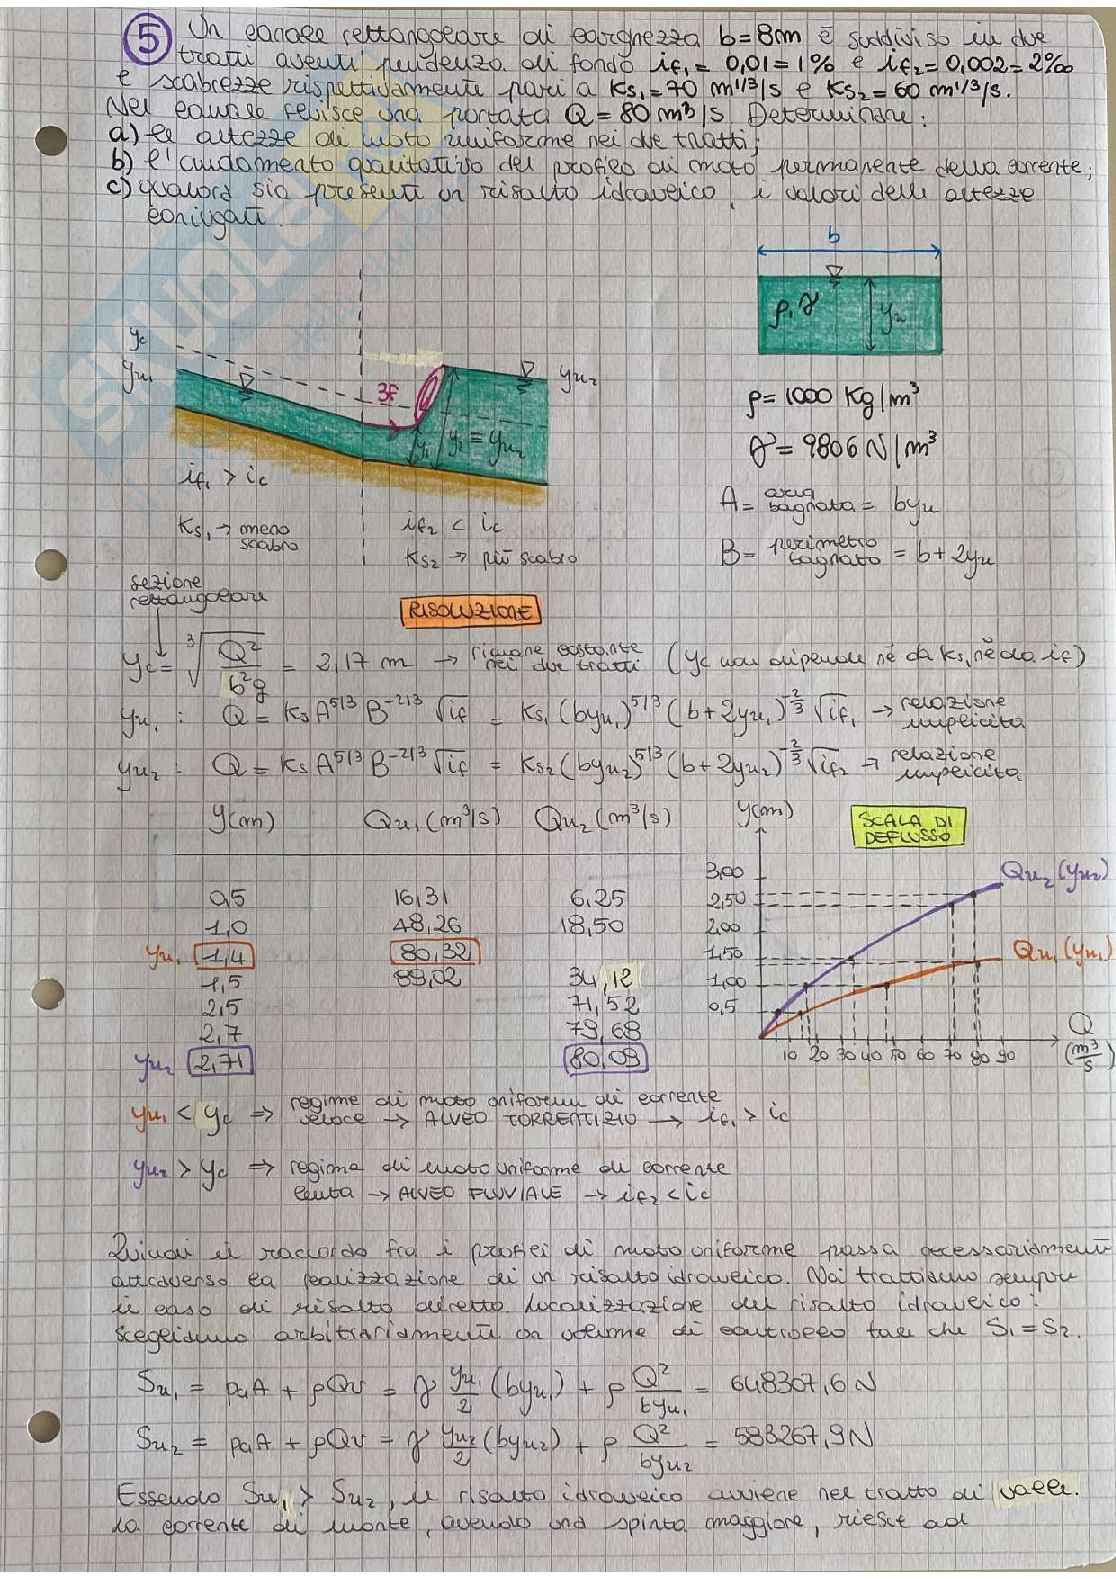 5 Un canale rettangolare di larghezza b=8m è suddiviso in due
tratti aventi pendenza di fondo if1=0,01=1% e if2=0,002=2‰
e scabrezze rispettivamente pari a Ks1=70 m^1/3/s e Ks2=60 m^1/3/s.
Nel canale defluisce una portata Q=80m³/s. Determinare:
a) le altezze di moto uniforme nei due tratti;
b) l'andamento qualitativo del profilo di moto permanente della corrente;
c) qualora sia presente un risalto idraulico, i valori delle altezze
coniugate.
b
ρ,γ
yu
yc
yu1
SF
y1
y2≡yu2
yu2
if1 > ic
Ks1 → meno
scabro
if2 < ic
Ks2 → più scabro
ρ=1000 Kg/m³
γ=9806 N/m³
A= area bagnata = byu
B= perimetro bagnato = b+2yu
sezione
rettangolare
RISOLUZIONE
yc= ∛(Q²/b²g) = 2,17 m → rimane costante nei due tratti (yc non dipende né da Ks, né da if)
yu1 : Q = Ks A^5/3 B^-2/3 √if = Ks1 (byu1)^5/3 (b+2yu1)^-2/3 √if1 → relazione implicita
yu2 : Q = Ks A^5/3 B^-2/3 √if = Ks2 (byu2)^5/3 (b+2yu2)^-2/3 √if2 → relazione implicita
y(m) Qu1(m³/s) Qu2(m³/s)
0,5 16,31 6,25
1,0 48,26 18,50
yu1 1,4 80,32
1,5 89,02 34,12
2,5 71,52
2,7 79,68
yu2 2,71 80,09
y(m)
SCALA DI
DEFLUSSO
3,00
2,50
2,00
1,50
1,00
0,5
Qu2(yu2)
Qu1(yu1)
10 20 30 40 50 60 70 80 90
Q
(m³/s)
yu1 < yc ⇒ regime di moto uniforme di corrente
veloce → ALVEO TORRENTIZIO → if1 > ic
yu2 > yc ⇒ regime di moto uniforme di corrente
lenta → ALVEO FLUVIALE → if2 < ic
Quindi il raccordo fra i profili di moto uniforme passa necessariamente
attraverso la realizzazione di un risalto idraulico. Noi trattiamo sempre
il caso di risalto diretto. Localizzazione del risalto idraulico:
scegliamo arbitrariamente un volume di controllo tale che S1=S2.
Su1 = pGA + ρQv = γ yu1/2 (byu1) + ρ Q²/byu1 = 648307,6 N
Su2 = pGA + ρQv = γ yu2/2 (byu2) + ρ Q²/byu2 = 583267,9 N
Essendo Su1 > Su2, il risalto idraulico avviene nel tratto di valle.
La corrente di monte, avendo una spinta maggiore, riesce ad